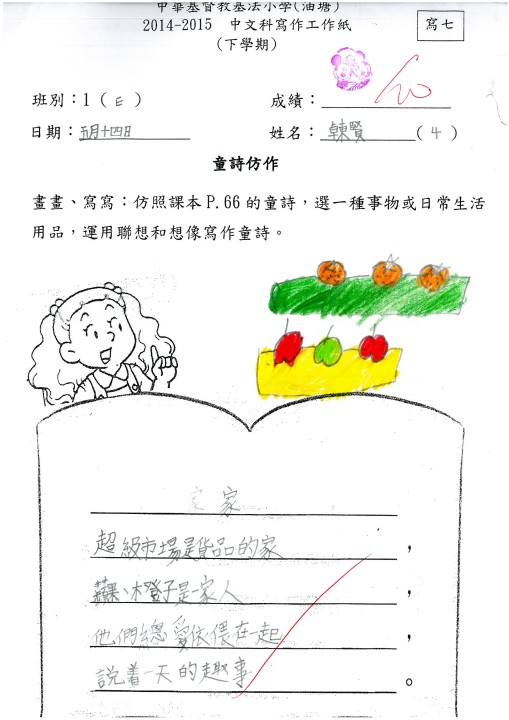 中華基督教基法小學(油塘)
2014-2015 中文科寫作工作紙
(下學期)
寫七
班別：1（E）
成績：
日期：五月十四日
姓名：卓賢（4）
童詩仿作
畫畫、寫寫：仿照課本P.66的童詩，選一種事物或日常生活
用品，運用聯想和想像寫作童詩。
家
超級市場是貨品的家，
蘋果、橙子是一家人，
他們總愛依偎在一起，
説着一天的趣事。